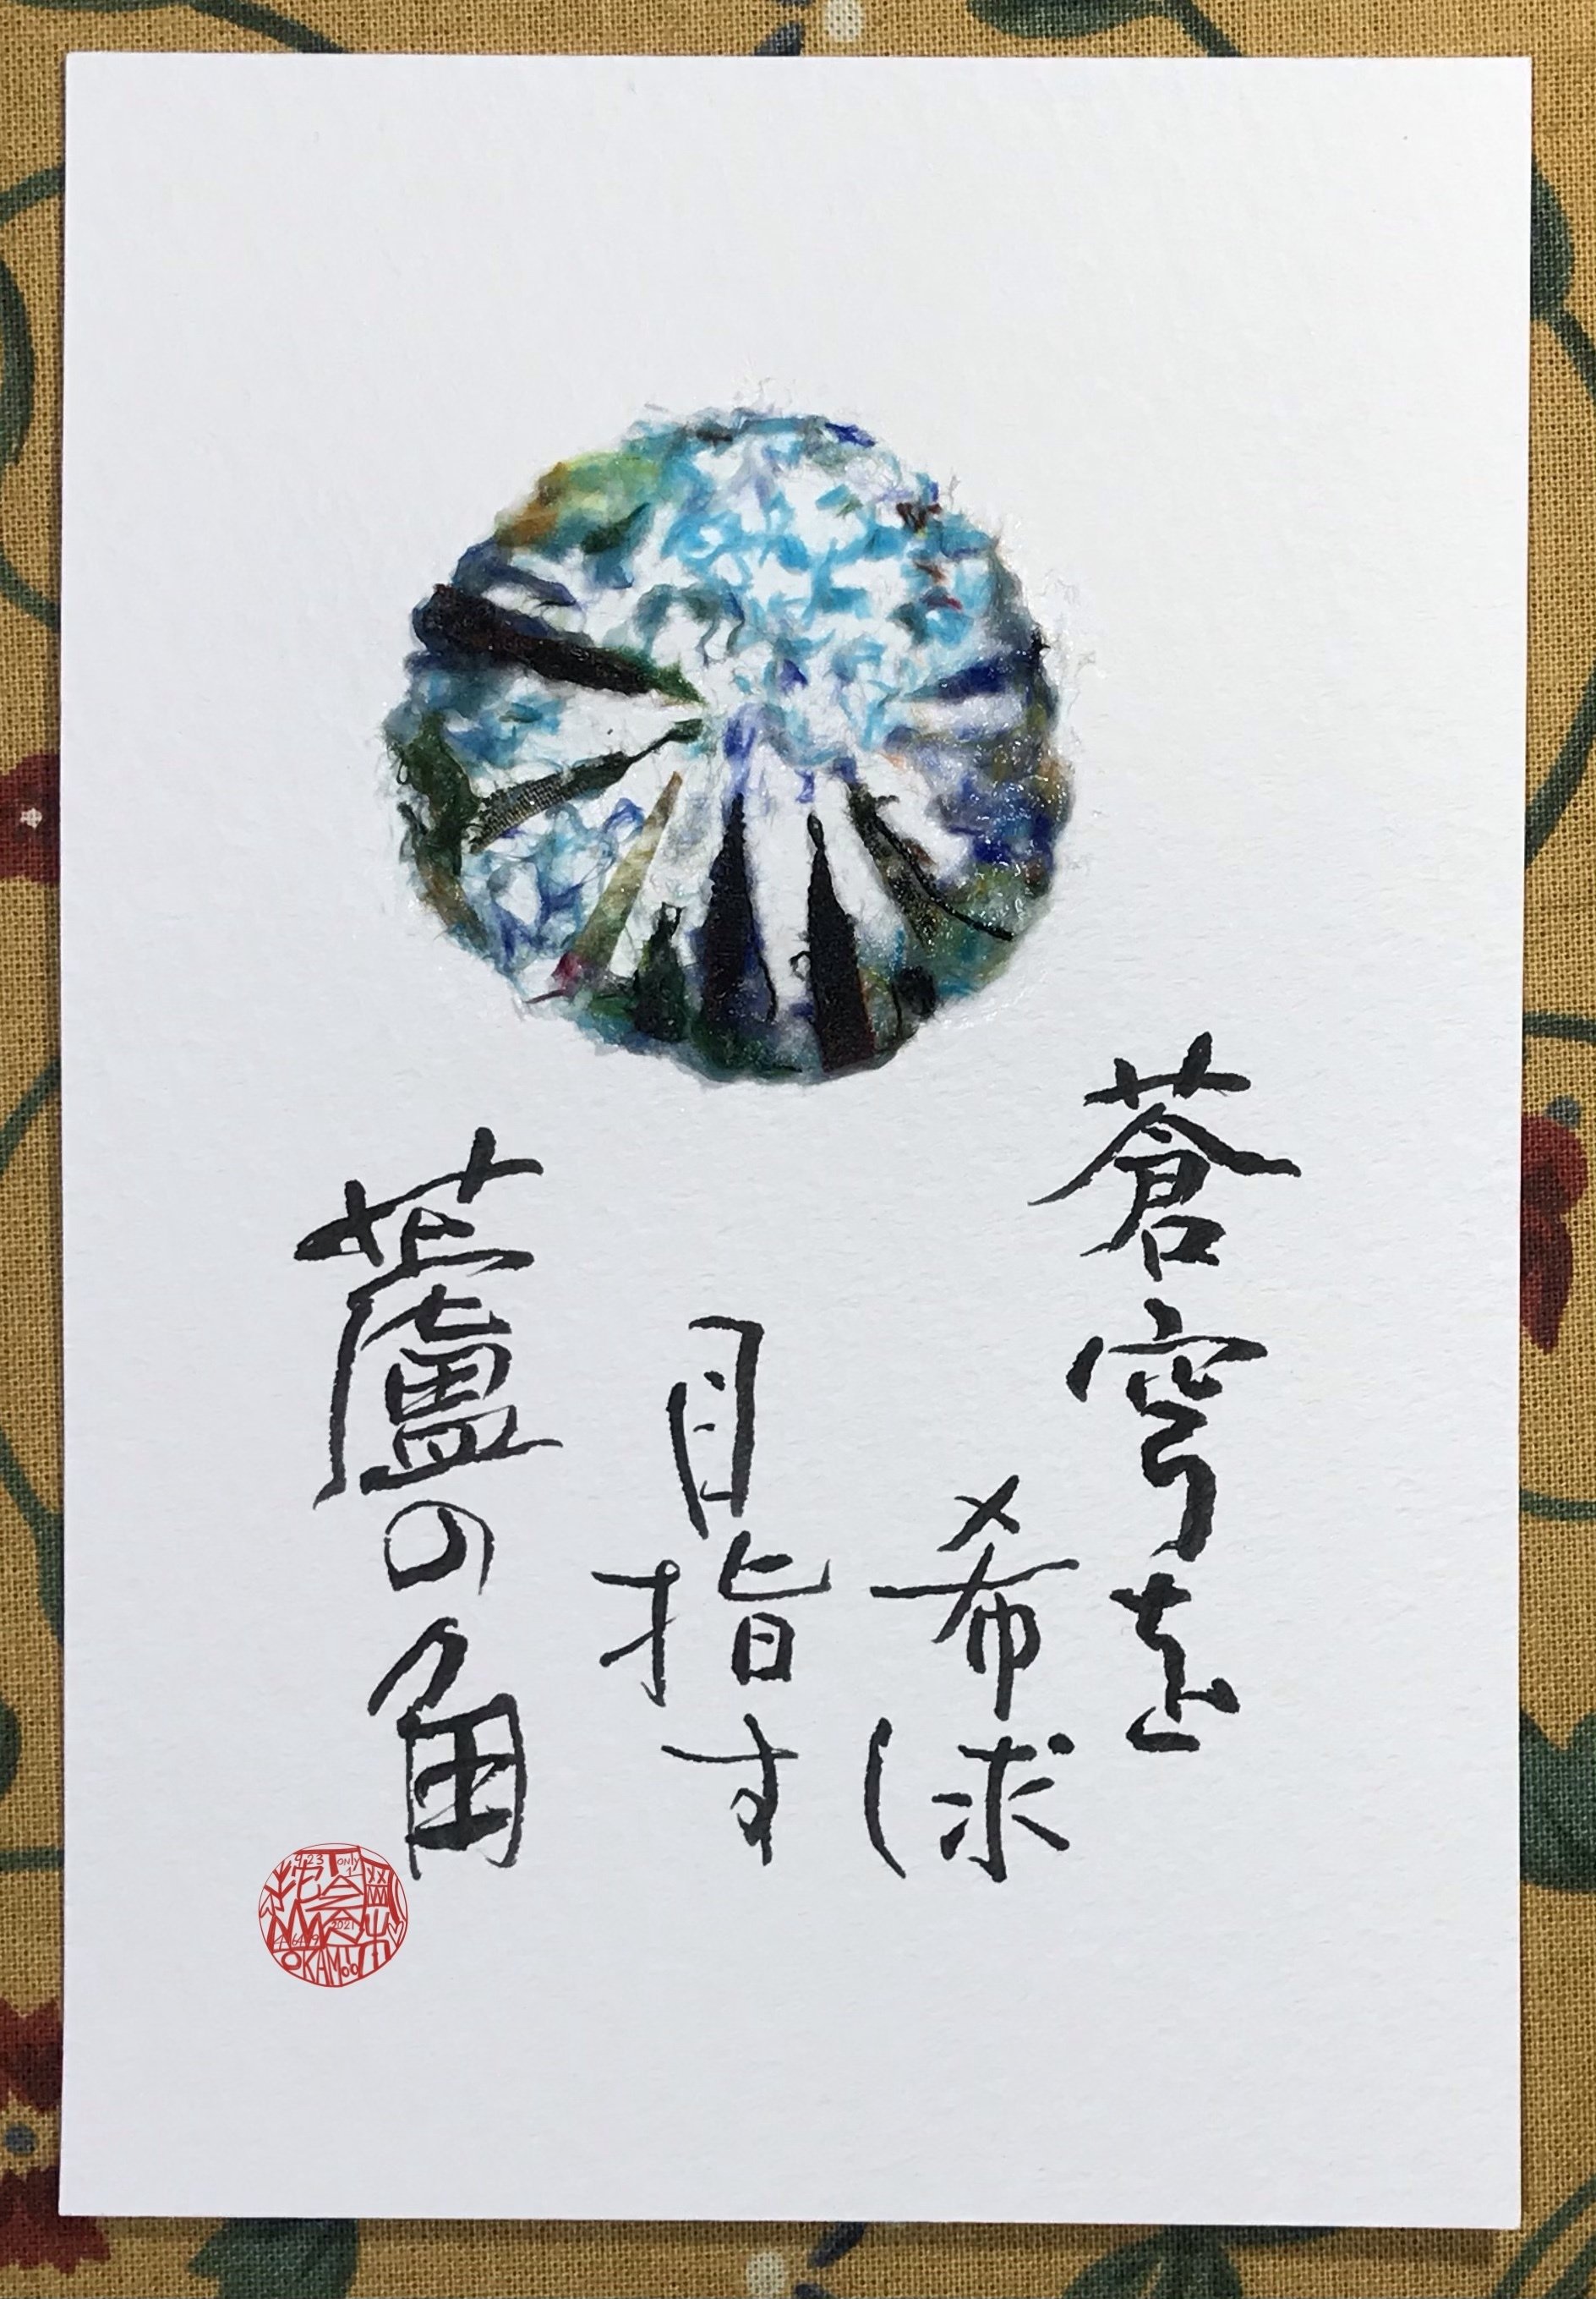 蒼穹を
希求し
目指す
蘆の角
4.23
only
1
2021
OKAMOTO